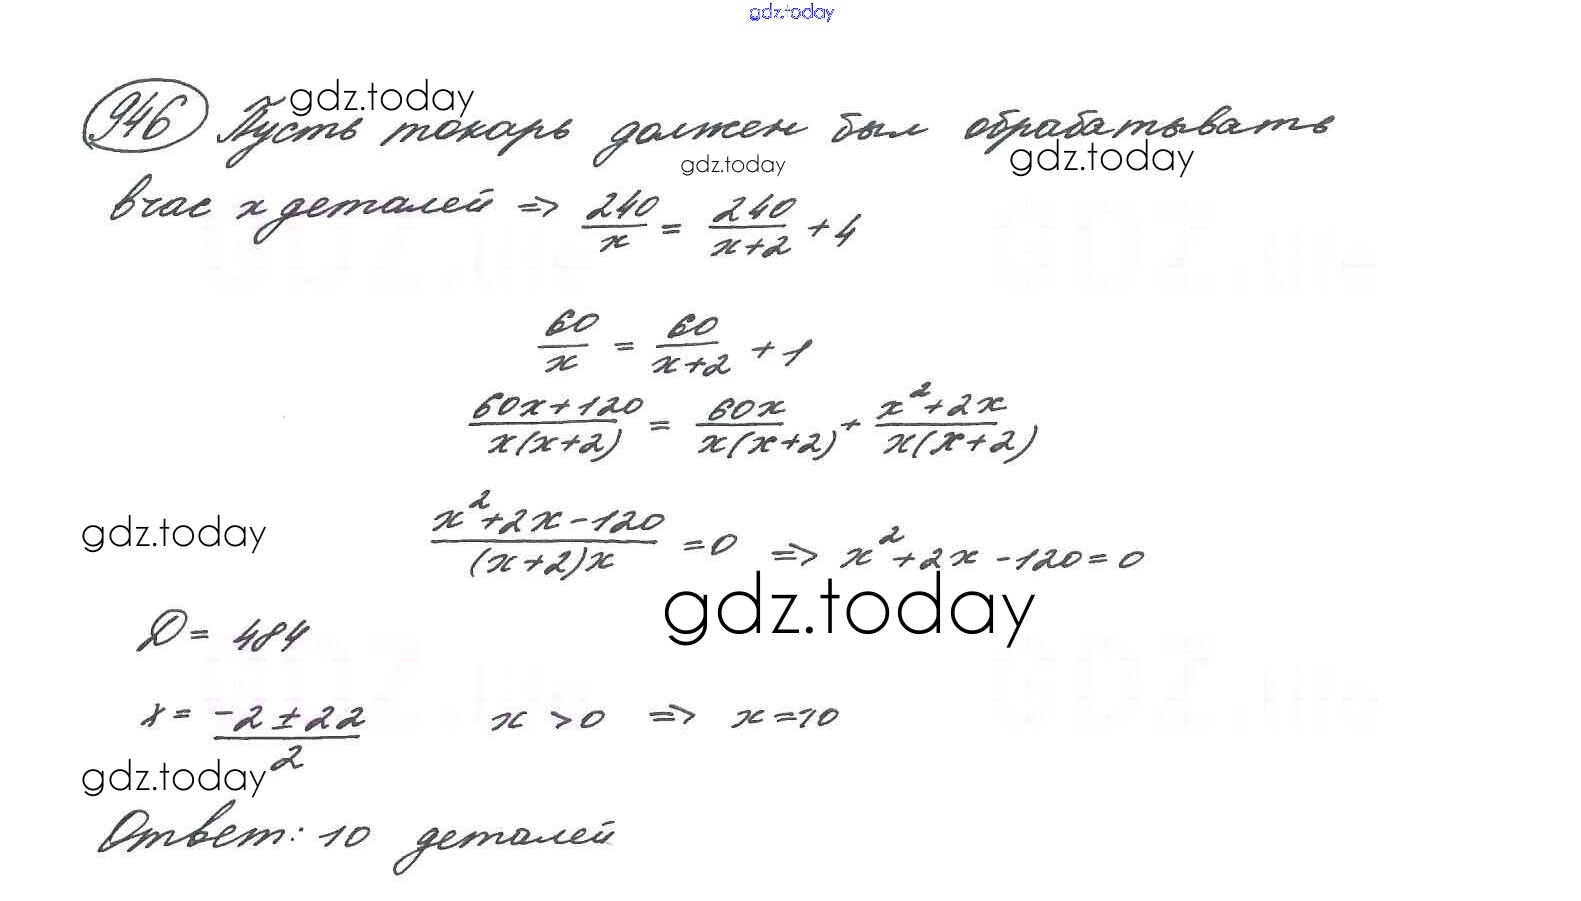 gdz.today
946 Пусть токарь должен был обрабатывать
gdz.today
gdz.today
gdz.today
в час x деталей => 240/x = 240/(x+2) + 4
60/x = 60/(x+2) + 1
(60x+120)/(x(x+2)) = 60x/(x(x+2)) + (x²+2x)/(x(x+2))
gdz.today
(x²+2x-120)/((x+2)x) = 0 => x²+2x-120=0
gdz.today
D = 484
x = (-2±22)/2 x>0 => x=10
gdz.today
Ответ: 10 деталей